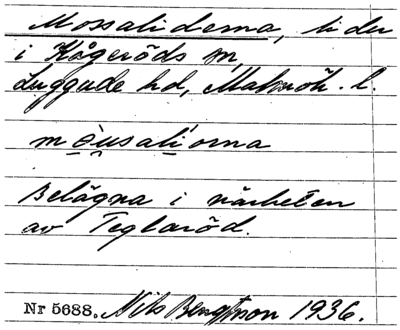 Mossaliderna, lider
i Kågeröds sn,
Luggude hd, Malmöh. l.
mèusali'orna
Belägna i närheten
av Teglaröd.
Nr 5688. Nils Bengtsson 1936.